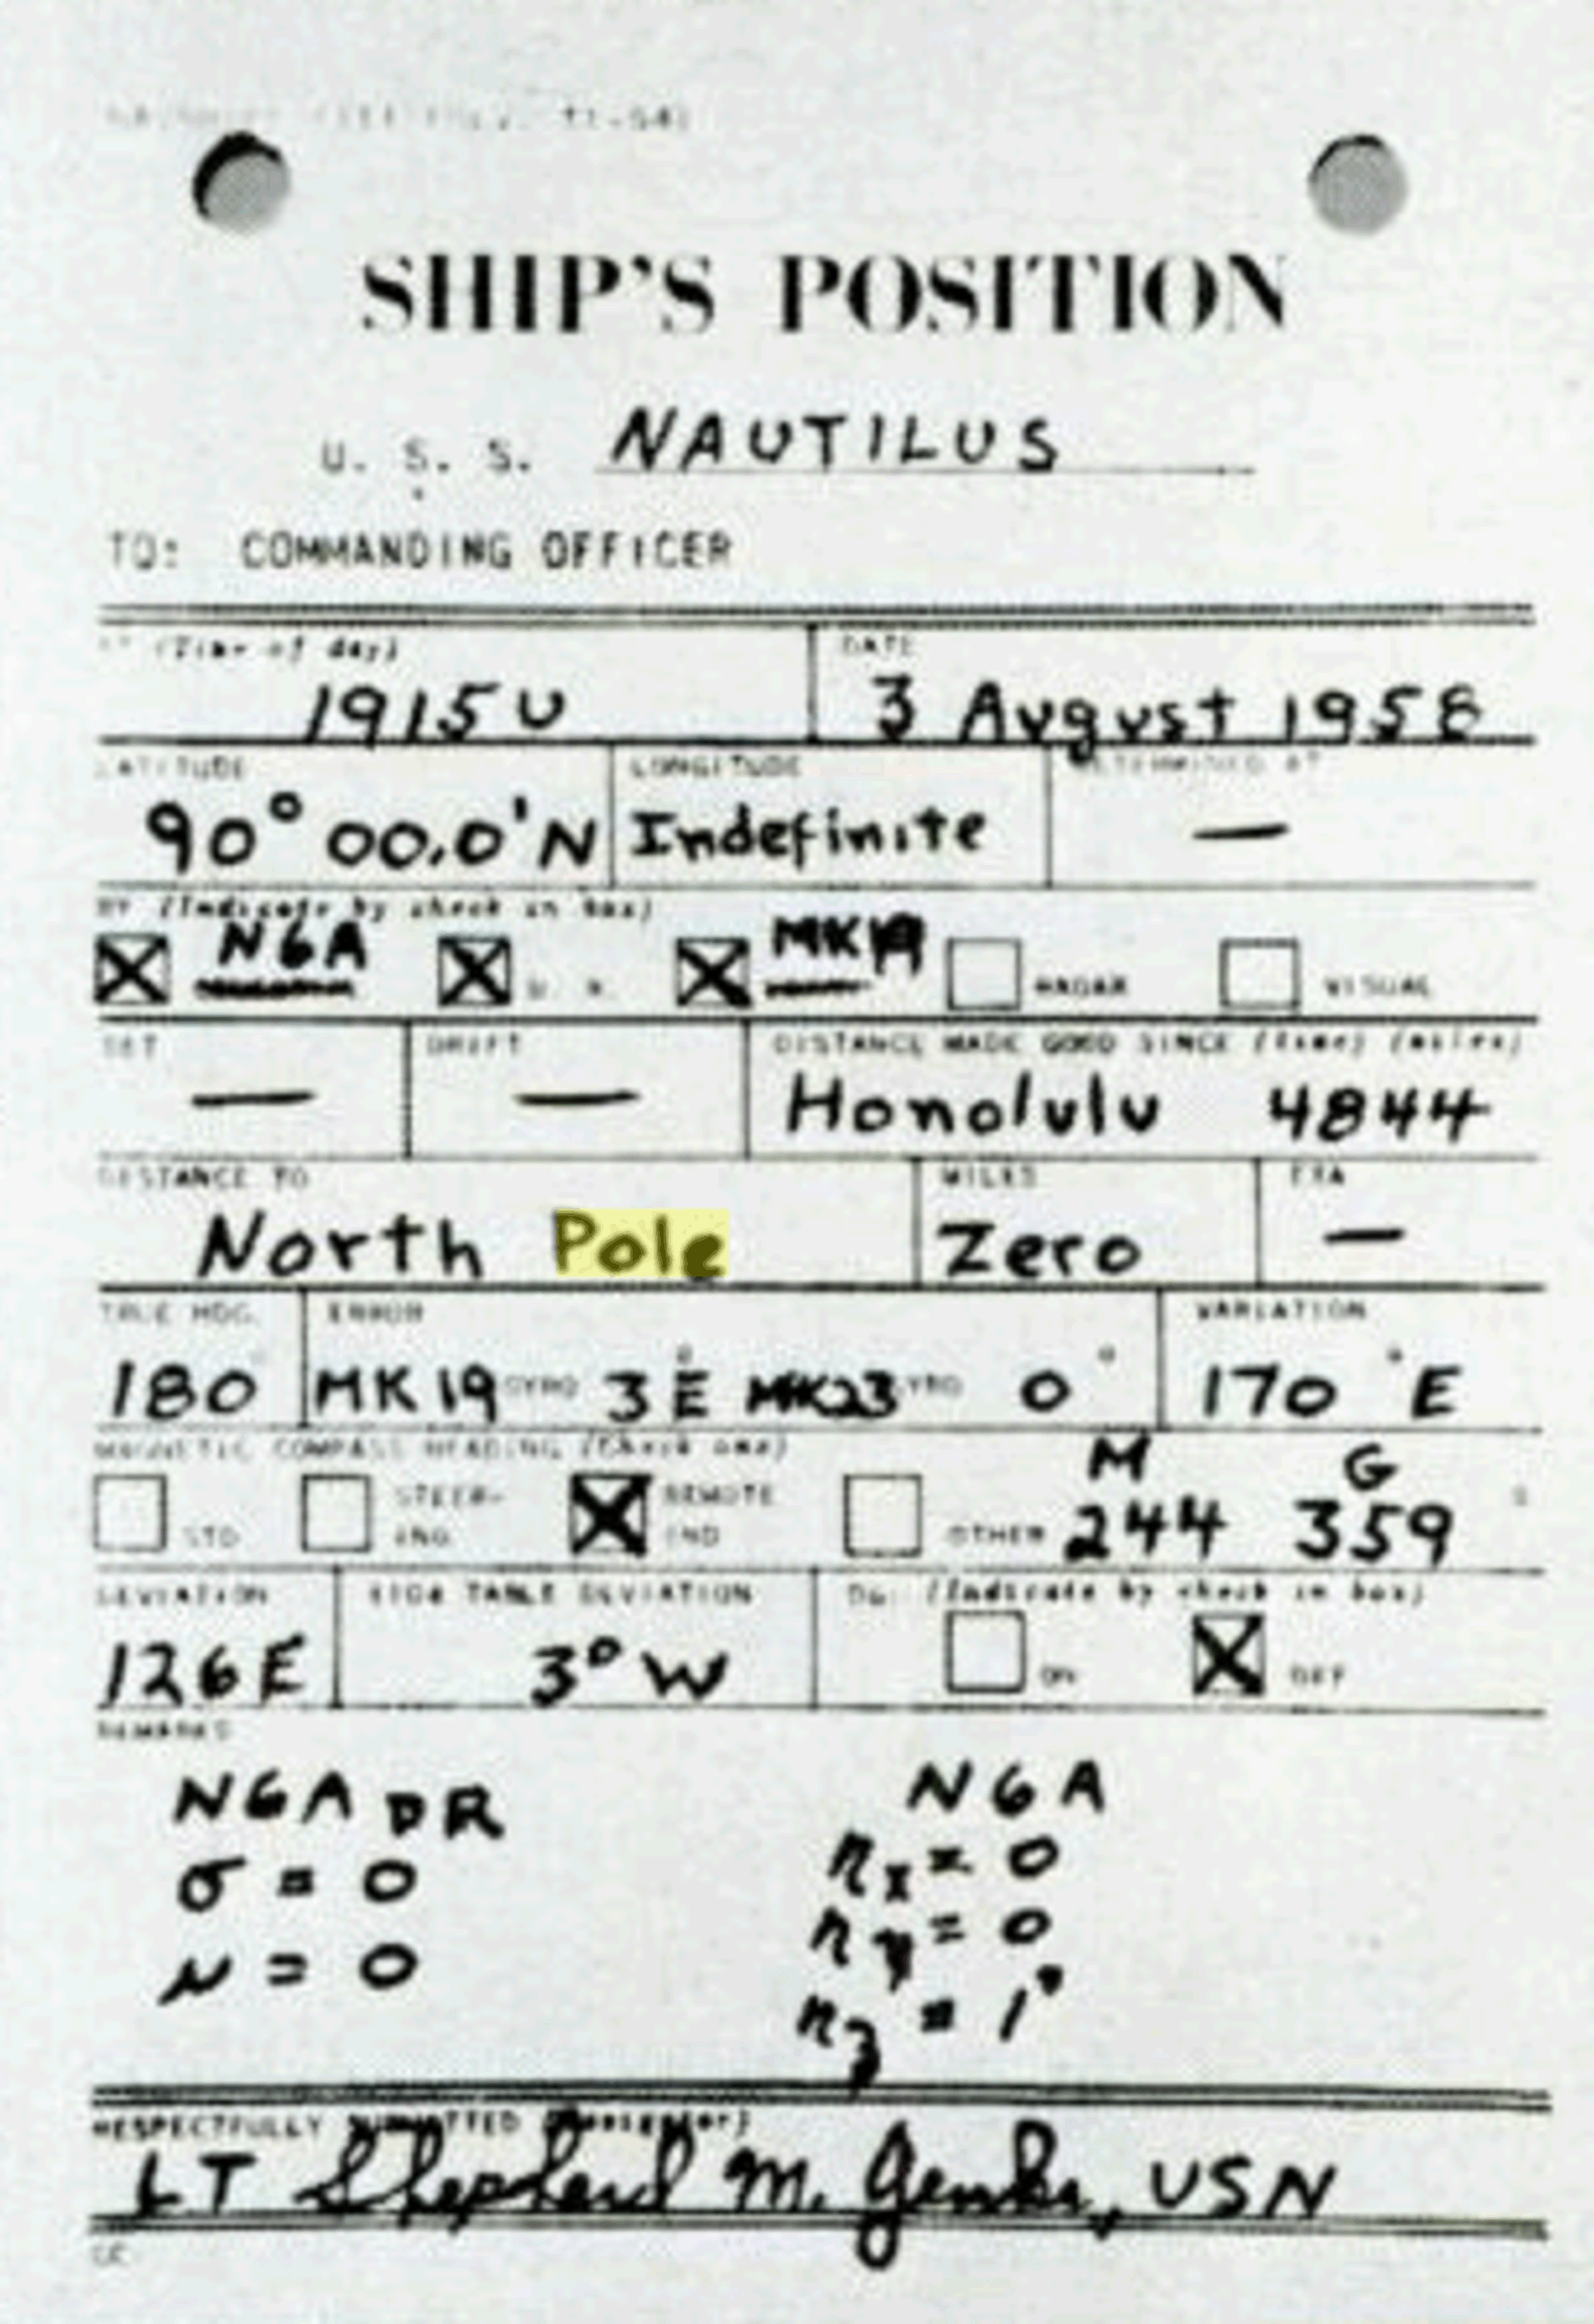 SHIP'S POSITION
U. S. S. NAUTILUS
TO: COMMANDING OFFICER
(Time of day) DATE
1915U 3 August 1958
LATITUDE LONGITUDE DETERMINED AT
90° 00.0'N Indefinite —
BY (Indicate by check in box)
N6A D. R. MK19 RADAR VISUAL
SET DRIFT DISTANCE MADE GOOD SINCE (time) (miles)
— — Honolulu 4844
DISTANCE TO MILES ETA
North Pole Zero —
TRUE HDG. ERROR VARIATION
180° MK19 GYRO 3°E MK23 GYRO 0° 170°E
MAGNETIC COMPASS HEADING (Check one) M G
STD STEER-ING REMOTE IND OTHER 244 359
DEVIATION 1104 TABLE DEVIATION DG: (Indicate by check in box)
126E 3°W ON OFF
REMARKS
N6A DR N6A
σ = 0 nx = 0
μ = 0 ny = 0
nz = 1"
RESPECTFULLY SUBMITTED (Navigator)
LT Shepherd M. Jenks, USN
CC